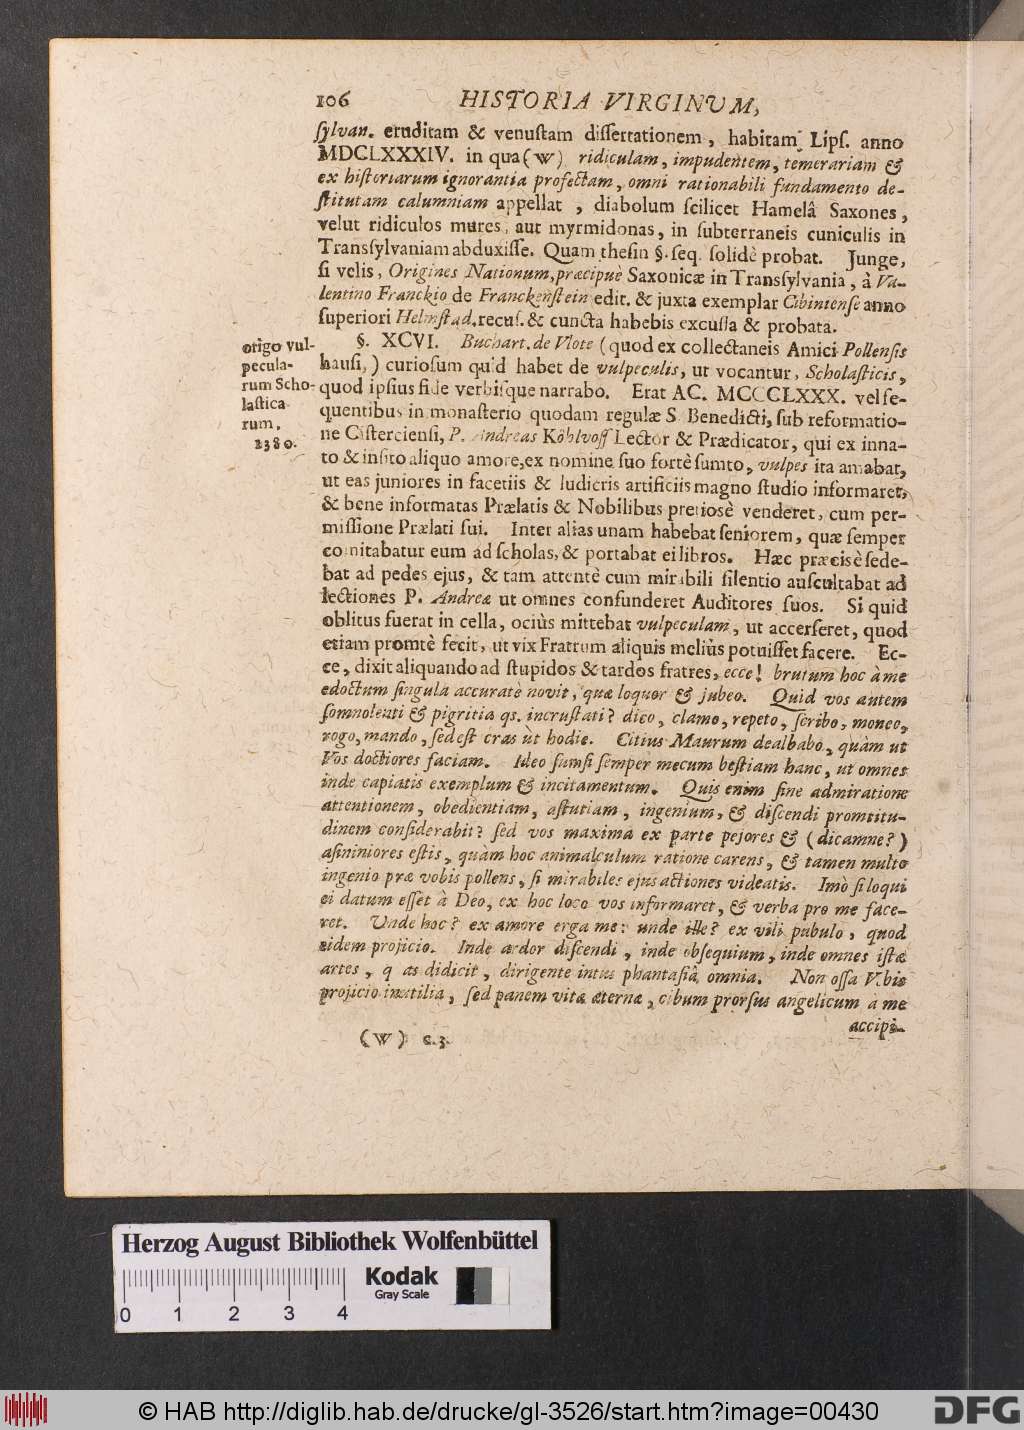 106 HISTORIA VIRGINUM,
ſylvan. eruditam & venuſtam diſſertationem, habitam Lipſ. anno
MDCLXXXIV. in qua (W) ridiculam, impudentem, temerariam &
ex hiſtoriarum ignorantia profectam, omni rationabili fundamento de-
ſtitutam calumniam appellat, diabolum ſcilicet Hamelâ Saxones,
velut ridiculos mures, aut myrmidonas, in ſubterraneis cuniculis in
Transſylvaniam abduxiſſe. Quam theſin §. ſeq. ſolidè probat. Junge,
ſi velis, Origines Nationum, præcipuè Saxonicæ in Transſylvania, â Va-
lentino Franckio de Franckenſtein edit. & juxta exemplar Cibinienſe anno
ſuperiori Helmſtad. recuſ. & cuncta habebis excuſſa & probata.
§. XCVI. Buchart. de Vlote (quod ex collectaneis Amici Pollenſis
hauſi,) curioſum quid habet de vulpeculis, ut vocantur, Scholaſticis,
quod ipſius fide verbiſque narrabo. Erat AC. MCCCLXXX. vel ſe-
quentibus in monaſterio quodam regulæ S. Benedicti, ſub reformatio-
ne Ciſtercienſi, P. Andreas Köhlvoſſ Lector & Prædicator, qui ex inna-
to & inſito aliquo amore, ex nomine ſuo fortè ſumto, vulpes ita amabat,
ut eas juniores in facetiis & ludicris artificiis magno ſtudio informaret,
& bene informatas Prælatis & Nobilibus pretiosè venderet, cum per-
miſſione Prælati ſui. Inter alias unam habebat ſeniorem, quæ ſemper
comitabatur eum ad ſcholas, & portabat ei libros. Hæc præcisè ſede-
bat ad pedes ejus, & tam attentè cum mirabili ſilentio auſcultabat ad
lectiones P. Andreæ ut omnes confunderet Auditores ſuos. Si quid
oblitus fuerat in cella, ociùs mittebat vulpeculam, ut accerſeret, quod
etiam promtè fecit, ut vix Fratrum aliquis meliùs potuiſſet facere. Ec-
ce, dixit aliquando ad ſtupidos & tardos fratres, ecce! brutum hoc à me
edoctum ſingula accuratè novit, quæ loquor & jubeo. Quid vos autem
ſomnolenti & pigritia qs. incruſtati? dico, clamo, repeto, ſcribo, moneo,
rogo, mando, ſed eſt cras ùt hodie. Citius Maurum dealbabo, quàm ut
Vos doctiores faciam. Ideo ſumſi ſemper mecum beſtiam hanc, ut omnes
inde capiatis exemplum & incitamentum. Quis enim ſine admiratione
attentionem, obedientiam, aſtutiam, ingenium, & diſcendi promtitu-
dinem conſiderabit? ſed vos maximâ ex parte pejores & (dicamne?)
aſininiores eſtis, quàm hoc animalculum ratione carens, & tamen multo
ingenio præ vobis pollens, ſi mirabiles ejus actiones videatis. Imò ſi loqui
ei datum eſſet à Deo, ex hoc loco vos informaret, & verba pro me face-
ret. Unde hoc? ex amore erga me: unde ille? ex vili pabulo, quod
eidem projicio. Inde ardor diſcendi, inde obſequium, inde omnes iſtæ
artes, q as didicit, dirigente intus phantaſiâ omnia. Non oſſa Vobis
projicio inutilia, ſed panem vitæ æternæ, cibum prorſus angelicum à me
accipi-
(W) c. 3.
origo vul-
pecula-
rum Scho-
laſtica
rum.
1380.
Herzog August Bibliothek Wolfenbüttel
Kodak
Gray Scale
0 1 2 3 4
© HAB http://diglib.hab.de/drucke/gl-3526/start.htm?image=00430
DFG